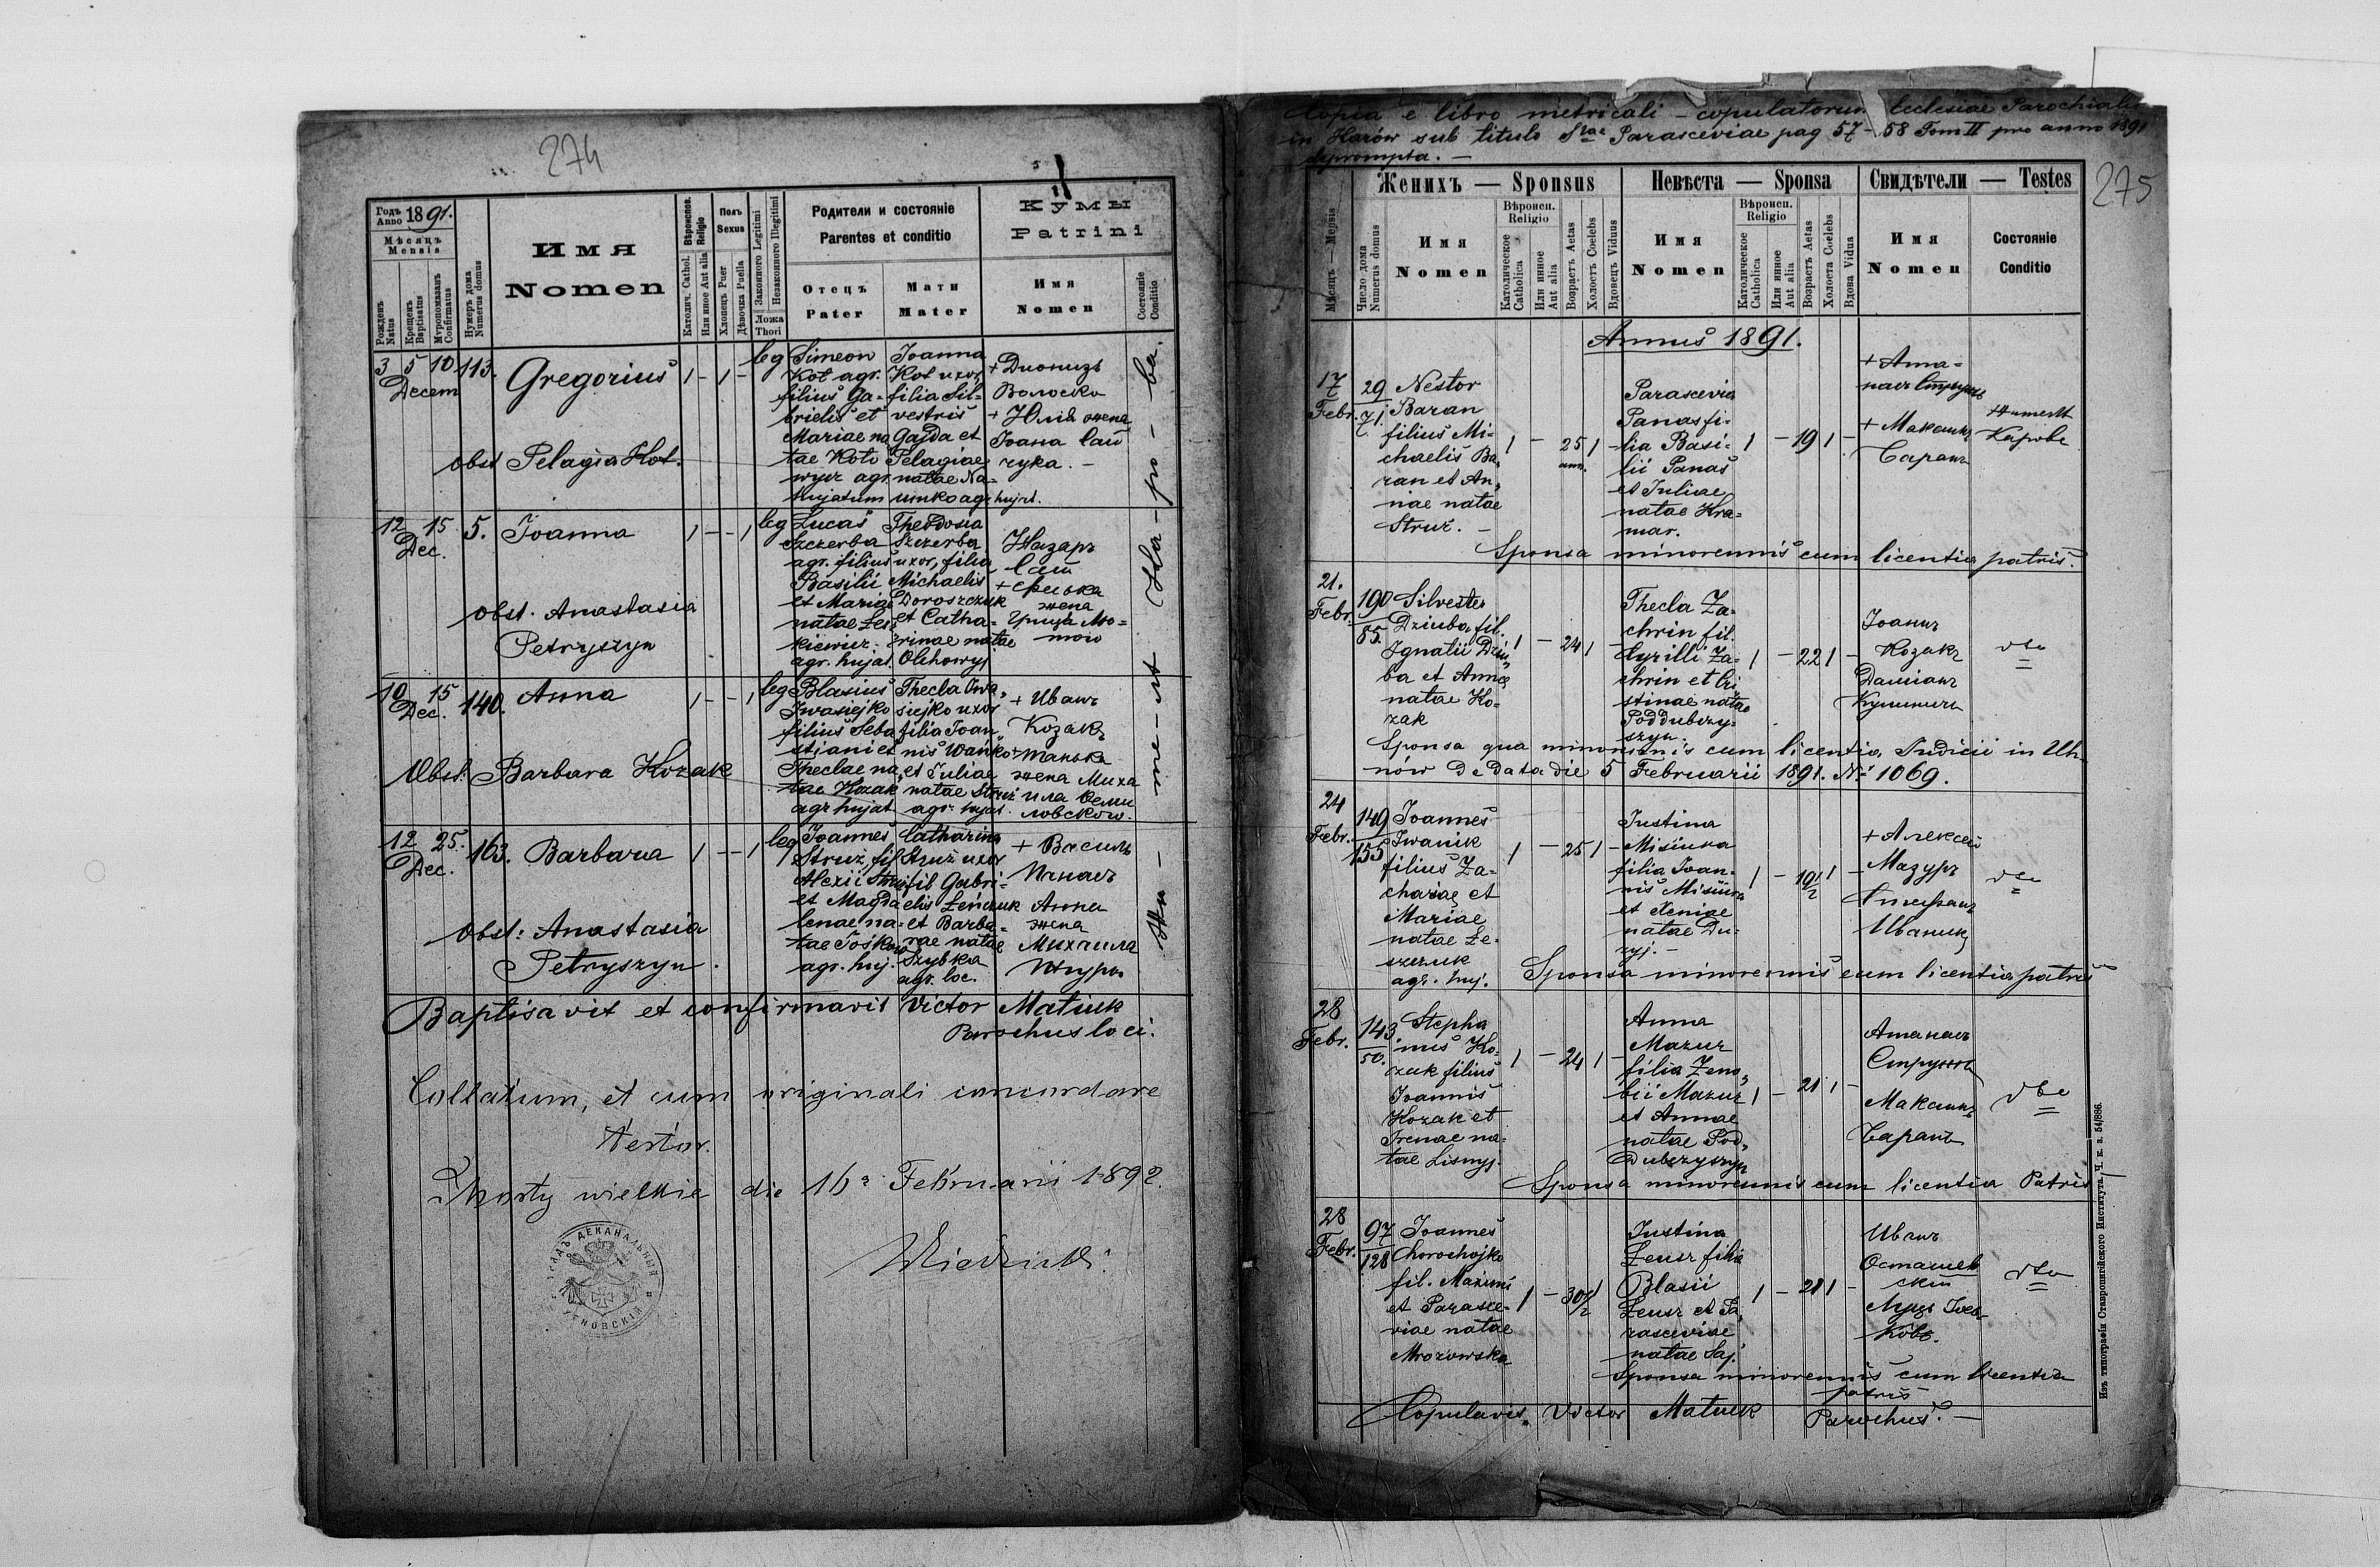 274
Годъ Anno 1891.
Мѣсяцъ Mensis
Рожденъ Natus
Крещенъ Baptisatus
Мѵропомазанъ Confirmatus
Нумеръ дома Numerus domus
Имя
Nomen
Вѣроисповѣд. Religio
Католич. Cathol.
Или иное Aut alia
Полъ Sexus
Хлопецъ Puer
Дѣвочка Puella
Законного Legitimi
Незаконного Illegitimi
Ложа Thori
Родители и состояніе
Parentes et conditio
Отецъ
Pater
Мати
Mater
Кумы
Patrini
Имя
Nomen
Состояніе Conditio
3 5 10 Decem
113.
Gregorius
1 - 1 -
leg
Simeon
Kot agr.
filius Ga-
brielis et
Mariae na
tae Koto
wycz agr.
hujatum
Joanna
Kot uxor,
filia Sil-
vestris
Gajda et
Pelagiae
natae Na-
umko agr hujat.
+ Дионизъ
Волоско
+ Юлія жена
Іоана Сай
чука. -
obst Pelagia Kot.
12 15 Dec.
5.
Joanna
1 - - 1
leg
Lucas
Szczerba
agr. filius
Basilii
et Mariae
natae Les
kiewicz.
agr. hujat.
Theodosia
Szczerba
uxor, filia
Michaelis
Doroszczuk
et Catha-
rinae natae
Olchowyj
Назаръ
Сай
+ Феська
жена
Гриця Мо-
obst. Anastasia
Petryszyn
10 15 Dec.
140.
Anna
1 - - 1
leg
Blasius
Iwasiejko
filius Seba
stiani et
Theclae na
tae Kozak
agr hujat
Thecla Iwa-
siejko uxor
filia Joan-
nis Wańko
et Juliae
natae Struż
agr. hujat.
+ Иванъ
Козакъ
+ Манька
жена Миха
ила Семи
ловского.
Obst: Barbara Kozak
12 25. Dec.
163.
Barbara
1 - - 1
leg
Joannes
Struż, fil
Alexii Struż
et Magda
lenae na-
tae Jośkow
agr. huj.
Catharina
Struż uxor
fil Gabri-
elis Leńczuk
et Barba-
rae natae
Szybka
agr. loc.
+ Василь
Панасъ
Анна
жена
Михаила
obst: Anastasia
Petryszyn.
Baptisavit et confirmavit Victor Matiuk
Parochus loci.
Collatum, et cum originali concordare
testor.
die 16a Februarii 1892.
УРЯДЪ ДЕКАНАЛЬНЫЙ УГНОВСКІЙ
Copia e libro metricali - copulatorum Ecclesiae Parochialis
in Karów sub titulo Stae Parasceviae pag 57 - 58 Tom II pro anno 1891
depromta. -
275
Женихъ — Sponsus
Невѣста — Sponsa
Свидѣтели — Testes
Мѣсяцъ — Mensis
Число дома Numerus domus
Имя
Nomen
Вѣроисп. Religio
Католическое Catholica
Или инное Aut alia
Возрастъ Aetas
Холостъ Coelebs
Вдовецъ Viduus
Имя
Nomen
Вѣроисп. Religio
Католическое Catholica
Или инное Aut alia
Возрастъ Aetas
Холоста Coelebs
Вдова Vidua
Имя
Nomen
Состояніе
Conditio
Annus 1891.
17 Febr.
29
71.
Nestor
Baran
filius Mi-
chaelis Ba-
ran et An-
nae natae
Struż. -
1 - 25 ann. 1 -
Parascevia
Panas fi-
lia Basi-
lii Panas
et Juliae
natae Kra-
mar.
1 - 19 1 -
+ Ата-
насъ Стружъ
+ Максимъ
Баранъ
жители
Карова
Sponsa minorennis cum licentia patris.
21. Febr.
190
85.
Silvester
Dziuba, fil.
Ignatii Dziu-
ba et Annae
natae Ko-
zak
1 - 24 1 -
Thecla Za-
chrin fil.
Cyrilli Za-
chrin et Cri
stinae natae
Poddubczy-
szyn.
1 - 22 1 -
Іоаннъ
Козакъ
Даміанъ
dto
Sponsa qua minorennis cum licentia Judicii in Uh-
nów De data die 5 Februarii 1891. N: 1069.
24 Febr.
149
155
Joannes
Iwanik
filius Za-
chariae et
Mariae
natae Le-
szczuk
agr. huj.
1 - 25 1 -
Justina
Misiura
filia Joan-
nis Misiura
et Xeniae
natae Du-
zyj. -
1 - 19 1/2 1 -
+ Алексей
Мазуръ
Иваникъ
dto
Sponsa minorennis cum licentia patris
28 Febr.
143
50.
Stepha
nus Ko-
zak filius
Joannis
Kozak et
Irenae na-
tae Lisnyj.
1 - 24 1 -
Anna
Mazur
filia Zeno-
bii Mazur
et Annae
natae Pod-
dubczyszyn
1 - 21 1 -
Атанасъ
Стружъ
Максимъ
Баранъ
dto
Sponsa minorennis cum licentia Patris
28 Febr.
97
128
Joannes
Choroshojko
fil. Maximi
et Parasce-
viae natae
Mrozowska
1 - 30 1/2 1
Justina
Leusz filia
Blasii
Leusz et Pa
rasceviae
natae Saj.
1 - 21 1 -
Иванъ
Осташев
скій
dto
Sponsa minorennis cum licentia
patris
Copulavit Victor Matiuk Parochus. -
Изъ типографіи Ставропигійского Института. Ч. к. а. 54/886.